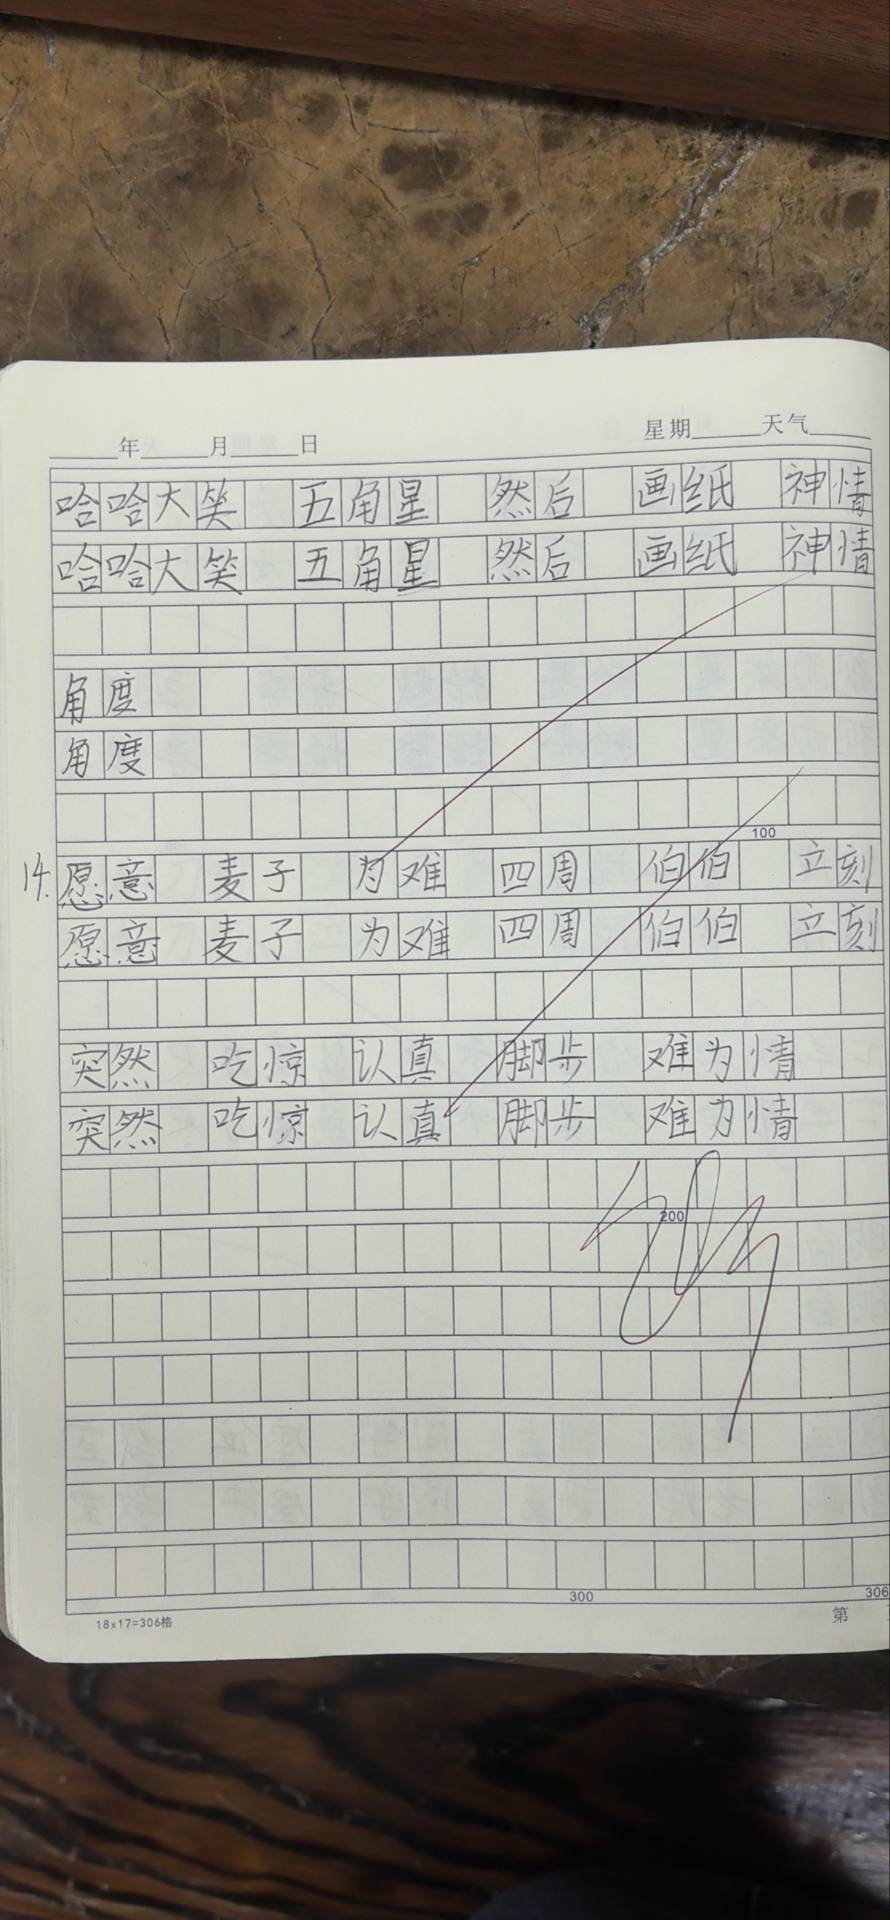 年 月 日 星期 天气
哈哈大笑 五角星 然后 画纸 神情
哈哈大笑 五角星 然后 画纸 神情
角度
角度
100
14. 愿意 麦子 为难 四周 伯伯 立刻
愿意 麦子 为难 四周 伯伯 立刻
突然 吃惊 认真 脚步 难为情
突然 吃惊 认真 脚步 难为情
200
300 306
18x17=306格 第